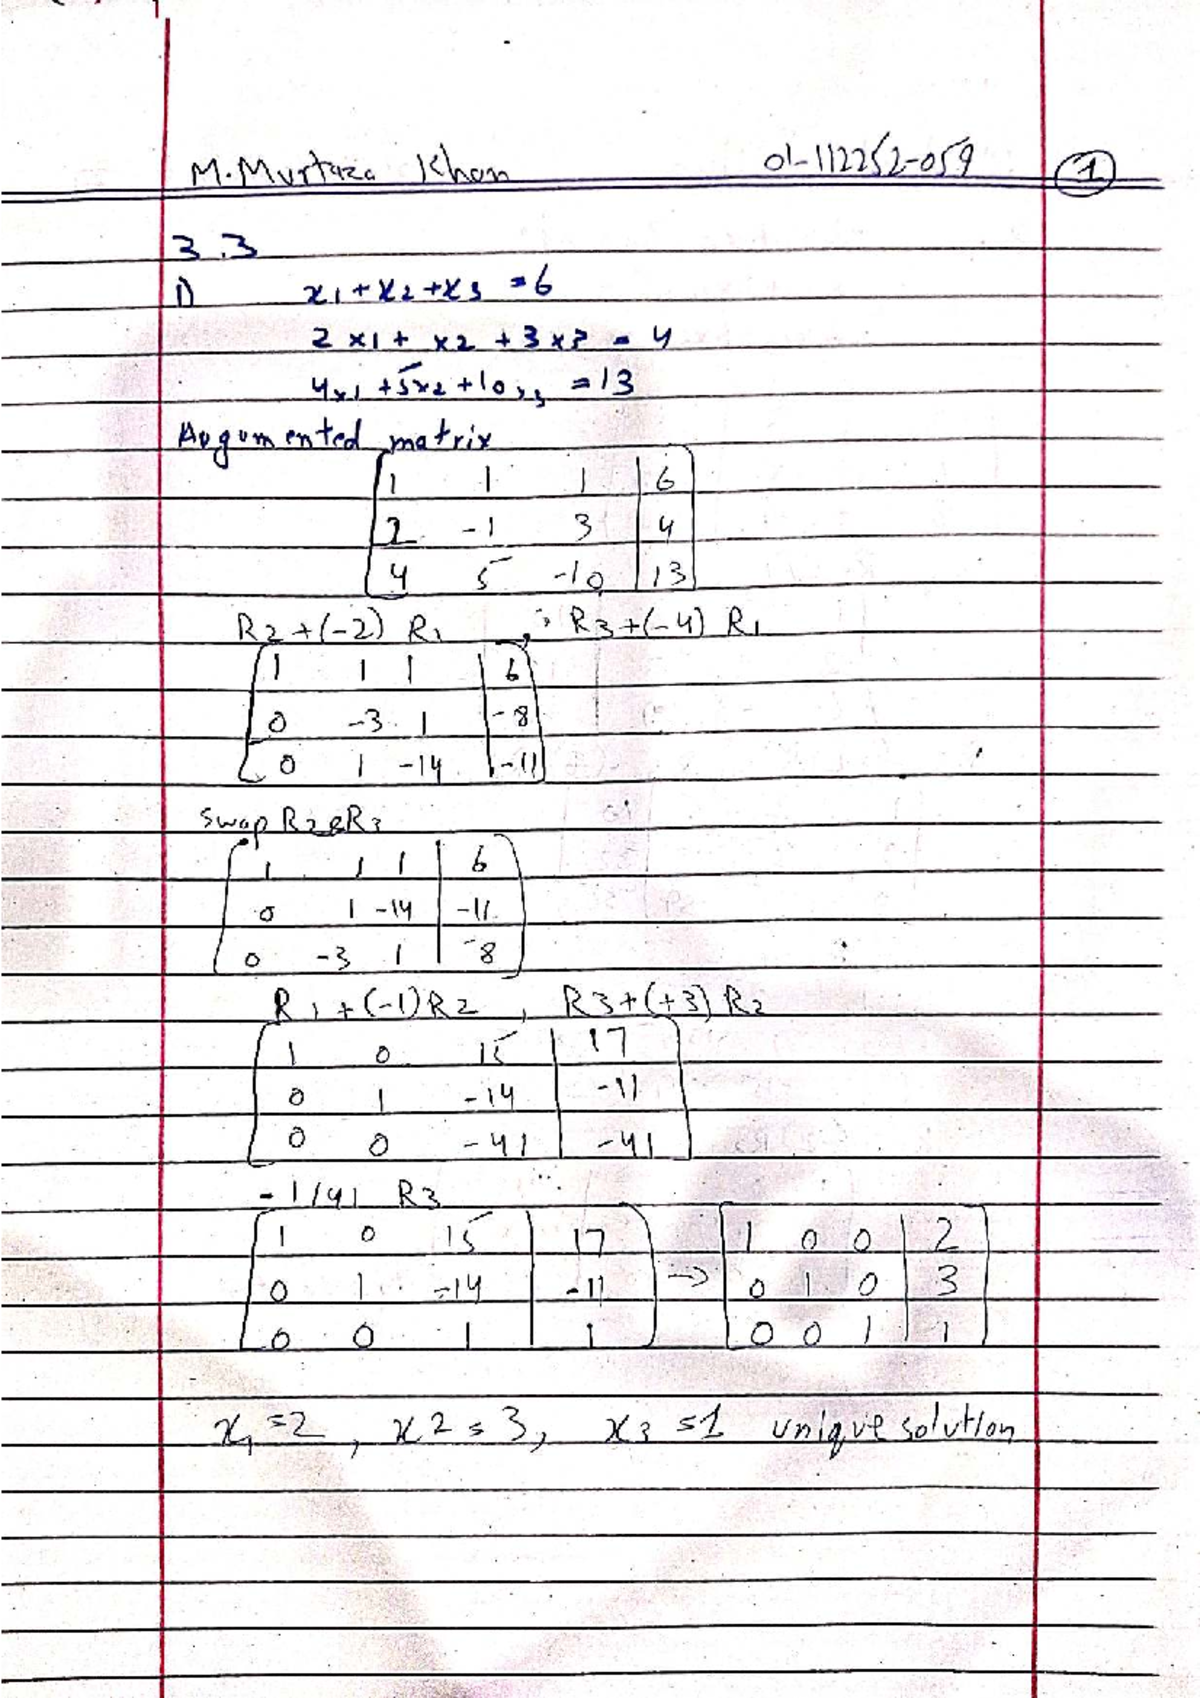 M.Murtaza Khan 01-112252-059 1
3.3
1) x1+x2+x3 =6
2x1+ x2 +3x3 = 4
4x1 +5x2+10x3 =13
Augumented matrix
1 1 1 | 6
2 -1 3 | 4
4 5 -10 | 13
R2+(-2) R1 , R3+(-4) R1
1 1 1 | 6
0 -3 1 | -8
0 1 -14 | -11
Swap R2&R3
1 1 1 | 6
0 1 -14 | -11
0 -3 1 | -8
R1+(-1)R2 , R3+(+3)R2
1 0 15 | 17
0 1 -14 | -11
0 0 -41 | -41
-1/41 R3
1 0 15 | 17 1 0 0 | 2
0 1 -14 | -11 → 0 1 0 | 3
0 0 1 | 1 0 0 1 | 1
x1=2 , x2=3, x3=1 unique solution